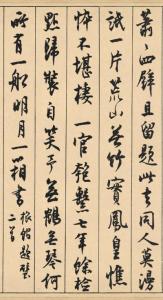 蕭〻四壁且留題此去同人莫漫
詆一片荒山無竹實鳳皇憔
悴不堪棲 一官匏繫七年餘檢
點歸裝自笑予無鶴無琴何
所有一船明月一箱書 題壁
二首